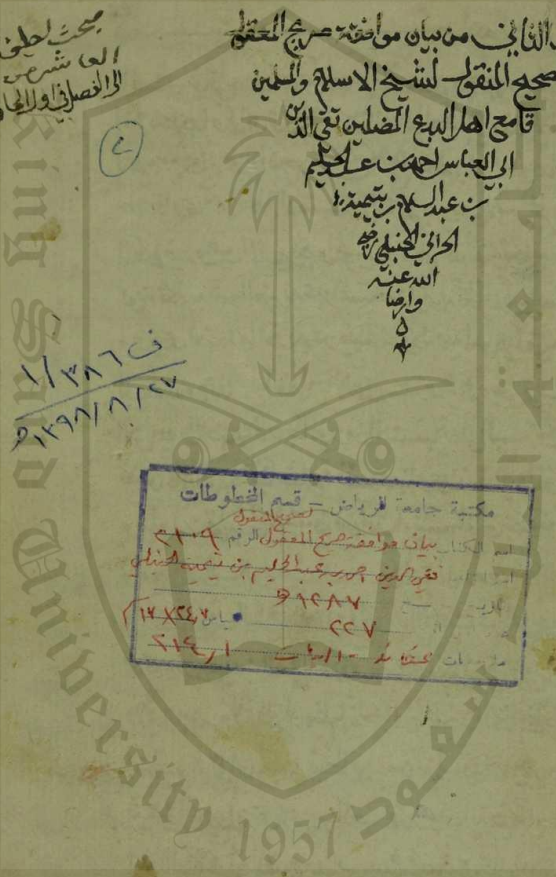 الثاني من بيان موافقة صريح المعقول
صحيح المنقول لشيخ الاسلام والمسلمين
قامع اهل البدع المضلين تقي الدين
ابي العباس احمد بن عبد الحليم
بن عبد السلام بن تيمية
الحراني الحنبلي رضي
الله عنه
وارضا
ه
مبحث لطيف
العاشر من
ف ٣٨٦/١
١٣٩٨/٨/٢٧ هـ
مكتبة جامعة الرياض - قسم المخطوطات
لصحيح المنقول
اسم الكتاب بيان موافقة صريح المعقول الرقم ٣١٠٩
تقي الدين احمد بن عبد الحليم بن تيمية الحنبلي
١٢٨٧ هـ
٢٢٧
ملاحظات عقائد
٢١٤ر١
King Saud University
1957
جامعة الملك سعود